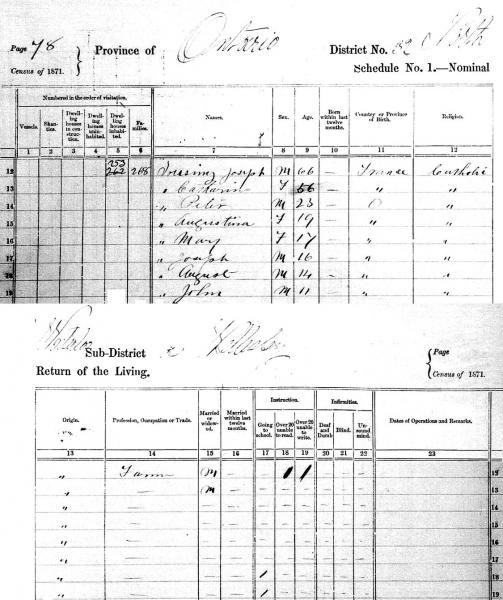 Page 78 Province of Ontario District No. 32 North
Census of 1871. Schedule No. 1.—Nominal
Numbered in the order of visitation.
Vessels. Shanties. Dwelling houses in construction. Dwelling houses uninhabited. Dwelling houses inhabited. Families. Names. Sex. Age. Born within last twelve months. Country or Province of Birth. Religion.
1 2 3 4 5 6 7 8 9 10 11 12
253
12 262 268 Joseph M 66 — France Catholic
13 " F 56 — " "
14 " Peter M 23 — O "
15 " Augustina F 19 — " "
16 " Mary F 17 — " "
17 " Joseph M 16 — " "
18 " August M 14 — " "
19 " John M 11 " "
Waterloo Sub-District Page
Return of the Living. Census of 1871.
Origin. Profession, Occupation or Trade. Married or widowed. Married within last twelve months. Instruction. Infirmities. Dates of Operations and Remarks.
Going to school. Over 20 unable to read. Over 20 unable to write. Deaf and Dumb. Blind. Unsound mind.
13 14 15 16 17 18 19 20 21 22 23
" M — 1 1 — — — 12
" — M — — — — 13
" — — — — — — 14
" — — — — — — 15
" — — — — — — 16
" — — — — — — 17
" — — — 1 — — — 18
" — — — 1 — — — 19